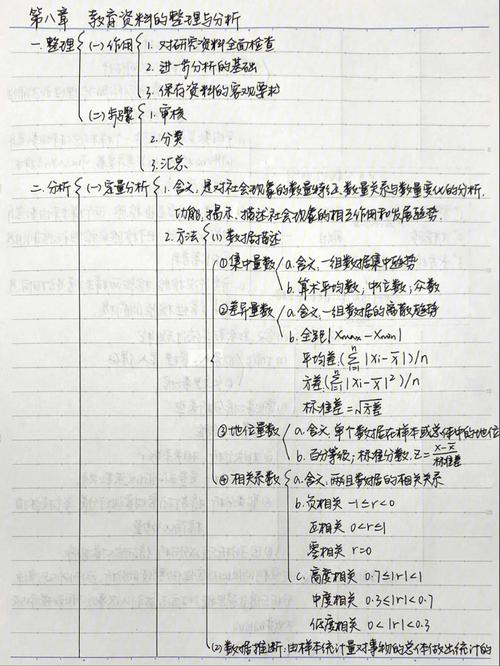 第八章 教育资料的整理与分析
一.整理 (一)作用 1.对研究资料全面检查
2.进一步分析的基础
3.保存资料的客观要求
(二)步骤 1.审核
2.分类
3.汇总
二.分析 (一)定量分析 1.含义,是对社会现象的数量特征、数量关系与数量变化的分析.
功能,揭示、描述社会现象的相互作用和发展趋势.
2.方法 (1)数据描述
①集中量数 a.含义,一组数据集中趋势
b.算术平均数,中位数,众数
②差异量数 a.含义,一组数据的离散趋势
b.全距|Xmax-Xmin|
平均差:(∑ⁿᵢ₌₁|Xi-X̄|)/n
方差:(∑ⁿᵢ₌₁|Xi-X̄|²)/n
标准差=√方差
③地位量数 a.含义,单个数据在样本或总体中的地位
b.百分等级,标准分数,Z=(X-X̄)/标准差
④相关系数 a.含义,两组数据的相关关系
b.负相关 -1≤r<0
正相关 0<r≤1
零相关 r=0
c.高度相关 0.7≤|r|<1
中度相关 0.3≤|r|<0.7
低度相关 0<|r|<0.3
(2)数据推断:由样本统计量对事物的总体做出统计的